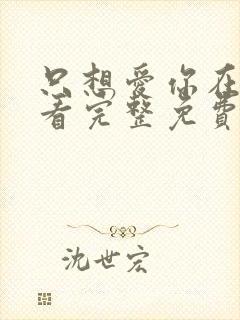 只想愛你在
看完整免費
沈世宏